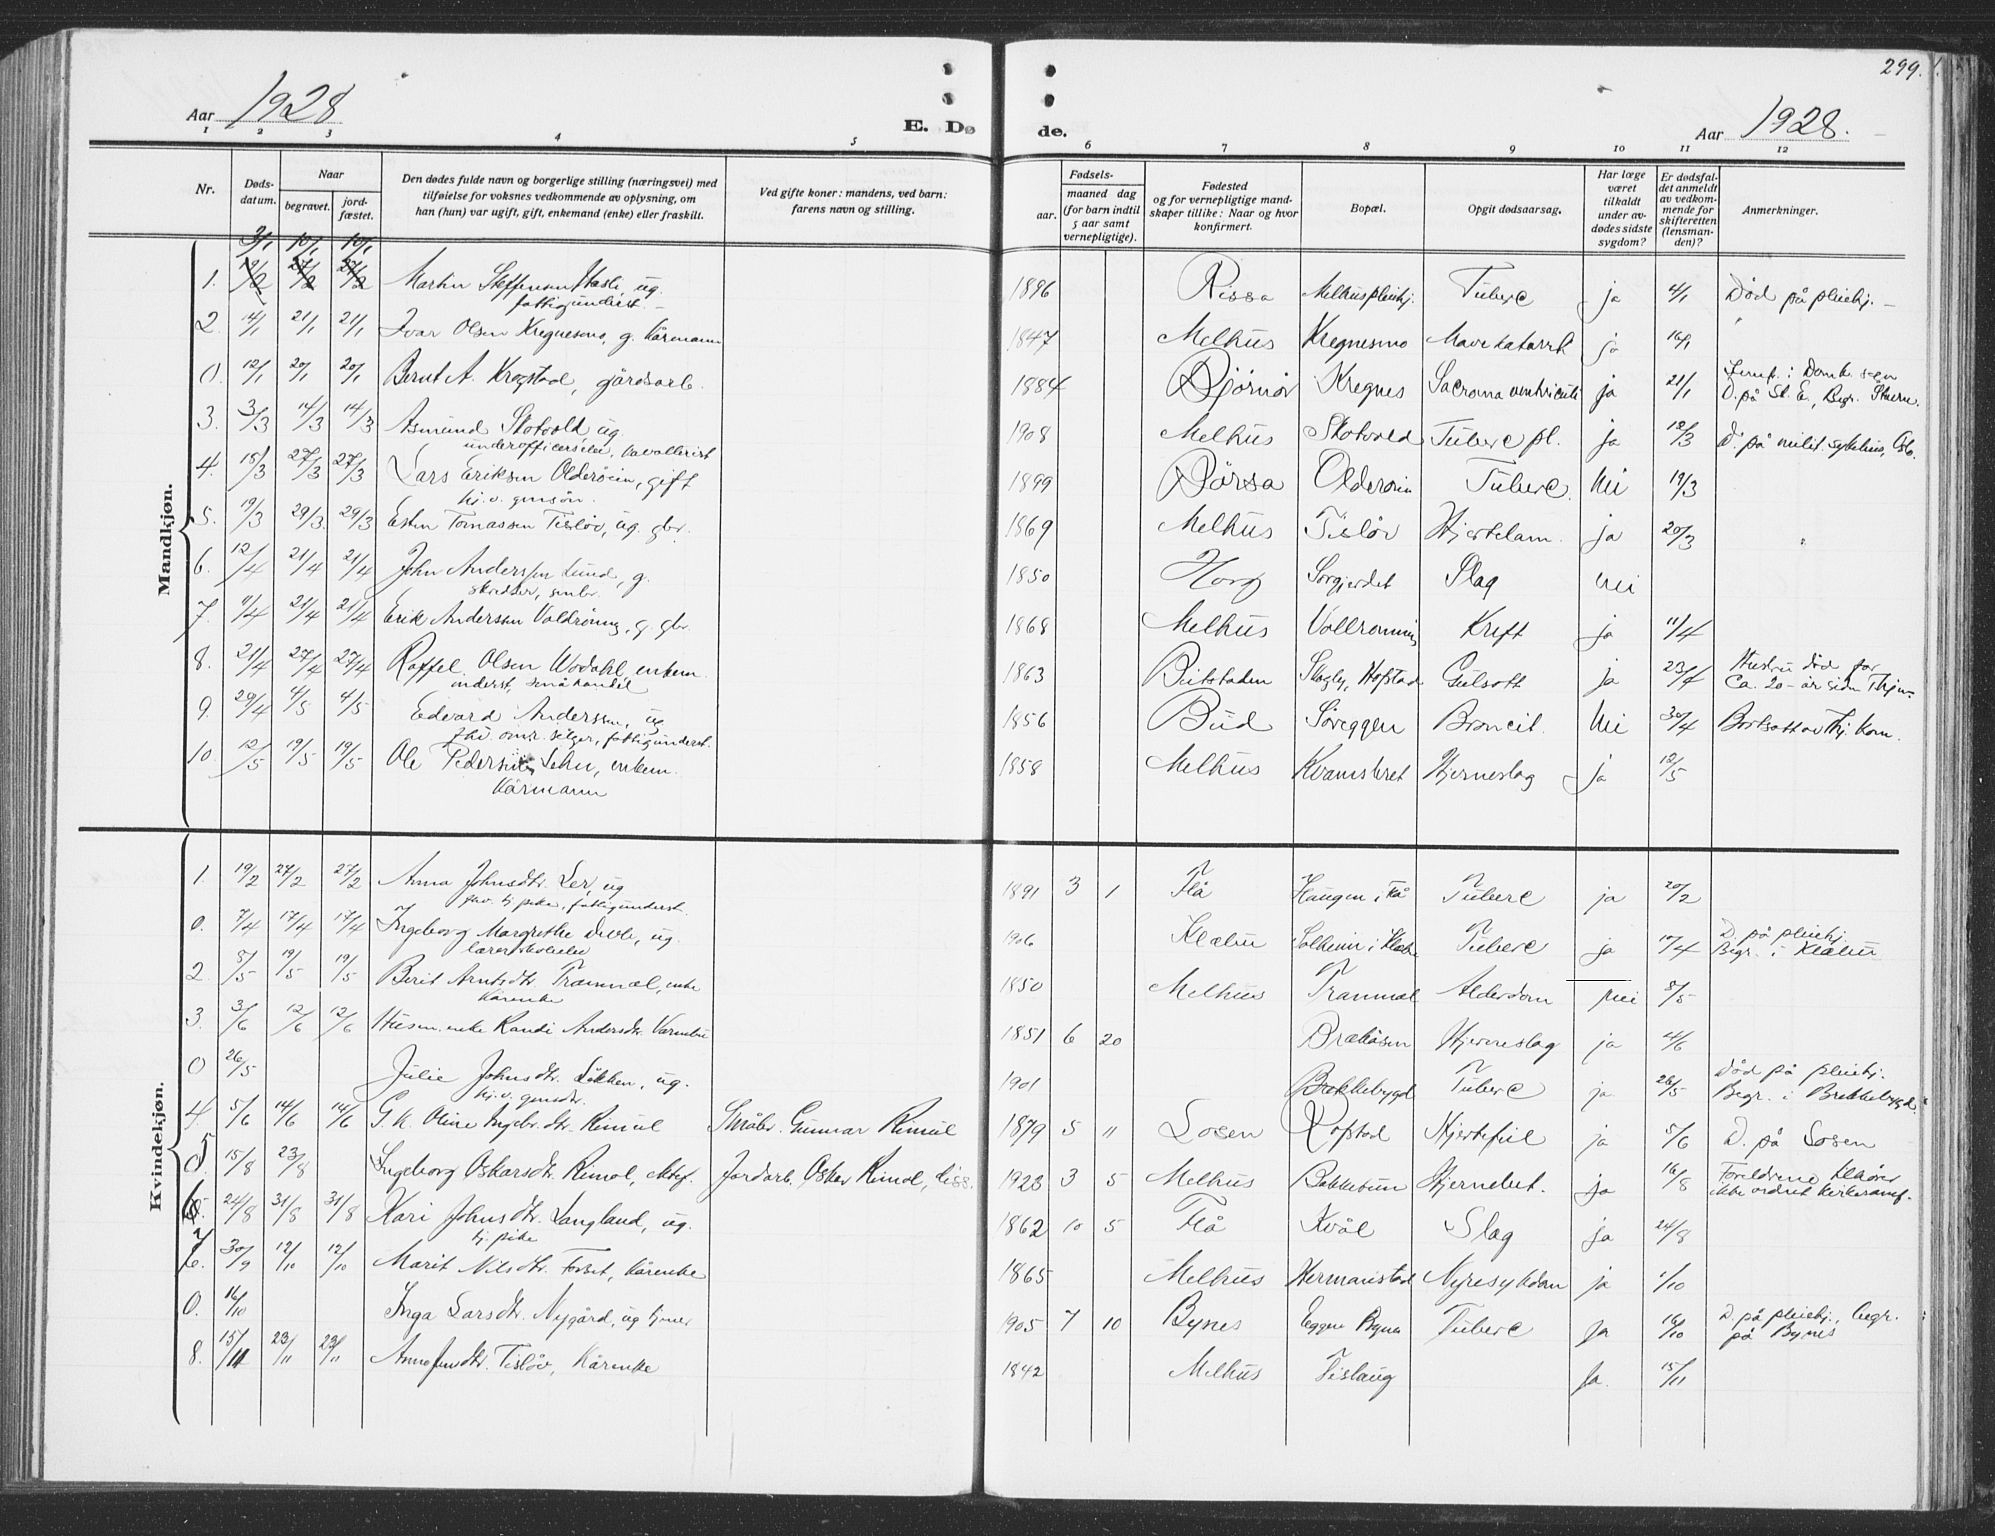 299.
Aar 1928
E. Dø
de.
Aar 1928.
1 2 3 4 5 6 7 8 9 10 11 12
Nr.
Døds-
datum.
Naar
begravet.
jord-
fæstet.
Den dødes fulde navn og borgerlige stilling (næringsvei) med
tilføielse for voksnes vedkommende av oplysning, om
han (hun) var ugift, gift, enkemand (enke) eller fraskilt.
Ved gifte koner: mandens, ved barn:
farens navn og stilling.
Fødsels-
aar.
maaned dag
(for barn indtil
5 aar samt
vernepligtige).
Fødested
og for vernepligtige mand-
skaper tillike: Naar og hvor
konfirmert.
Bopæl.
Opgit dødsaarsag.
Har læge
været
tilkaldt
under av-
dødes sidste
sygdom?
Er dødsfal-
det anmeldt
av vedkom-
mende for
skifteretten
(lensman-
den)?
Anmerkninger.
Mandkjøn.
3/1 10/1 10/1
1. 19/2 27/2 27/2 Martin Steffensen, ug. 1896 Rissa Melhus pleiehj. Tuberc ja 4/1 Død på pleiehj.
fattigunderst.
2. 4/1 21/1 21/1 Ivar Olsen Kregnesmo, g. kårmann 1847 Melhus Kregnesmo Mavekatarrh ja 16/1
0. 12/1 20/1 20/1 Berut A. Krogstad, gårdsarb. 1884 Bjørnør Kregnes Sacroma ventriculi ja 21/1
D. på St. E., Begr.
3. 3/3 14/3 14/3 Asmund Skotvold ug. 1908 Melhus Skotvold Tuberc pl. ja 12/3 D. på milit. sykehus, Osb.
underofficerselev, kavallerist
4. 15/3 27/3 27/3 Lars Eriksen Olderøien, gift 1899 Børsa Olderøien Tuberc. nei 19/3
hj. v. gmsøn.
5. 19/3 29/3. 29/3 Esten Tomassen Tisløv, ug. gbr. 1869 Melhus Tisløv Hjertelam. ja 20/3
6. 12/4 21/4 21/4 John Anderssen Lund, g. 1850 Horg Sorgjerdet Slag nei
skredder, smbr.
7. 11/4 21/4 21/4 Erik Anderssen Voldrønning, g. gbr. 1868 Melhus Vollrønning Kreft ja 11/4
8. 21/4 27/4 27/4 Raffel Olsen Wodahl, enkem. 1863 Beitstaden Skogly, Hofstad Gulsott ja 23/4 Hustru død for
inderst, småhandel Ca. 20 år siden
9. 29/4 4/5 4/5 Edvard Anderssen, ug 1856 Bud Søreggen Broncit. nei 30/4 Bortsatt av Thj. kom.
fhv. omr. selger, fattigunderst.
10. 12/5 19/5 19/5 Ole Pedersen Sehn, enkem. 1858 Melhus Kvamsteret Hjerneslag ja 12/5
Kårmann
Kvindekjøn.
1. 19/2 27/2 27/2 Anna Johnsdtr. Ler, ug 1891 3 1 Flå Haugen i Flå Tuberc ja 20/2
fhv. tj. pike, fattigunderst.
0. 7/4 17/4 17/4 Ingeborg Margrethe Devle, ug. 1906 Klæbu Solheim i Klæbu Tuberc ja 10/4 D. på pleiehj.
lærerskoleelev Begr. i Klæbu
2. 8/5 19/5 19/5 Berit Arntsdtr. Tranmæl, enke 1850 Melhus Tranmæl Alderdom nei 8/5
Kårenke
3. 3/6 12/6 12/6 Husm. enke Randi Andersdtr. Varmbu 1851 6 20 Brækåsen Hjerneslag ja 4/6
0 26/5 Julie Johnsdtr. Løkken, ug. 1901 Brekkebygd Tuberc ja 26/5 Død på pleiehj.
hj. v. gmsdtr. Begr. i Brekkebygd.
4. 5/6 14/6 14/6 G.k. Oline Ingebr.dtr. Rimul Småbr. Gunnar Rimul 1879 5 11 Losen Rofstad Hjertefeil ja 5/6 D. på Losen
5 15/8 23/8 Ingeborg Oskarsdtr. Rimol, ektef. Jordarb. Oskar Rimol, diss. 1923 3 5 Melhus Bakketun Hjernebet. ja 16/8 Foreldrene tilhører
ikke ordnet kirkesamf.
6. 24/8 31/8 31/8 Kari Johnsdtr. Langland, ug. 1862 10 5 Flå Kvål Slag ja 24/8
tj. pike
7. 30/9 12/10 12/10 Marit Nilsdtr. Forset, kårenke 1865 Melhus Hermanstad Nyresykdom ja 1/10
0. 16/10 Inga Larsdtr. Nygård, ug tjener 1905 7 10 Bynes Eggen Bynes Tuberc ja 16/10 D. på pleiehj., begr.
på Bynes
8. 15/11 23/11 23/11 Anne Jensdtr. Tisløv, Kårenke 1842 Melhus Tislaug Ja. 15/11